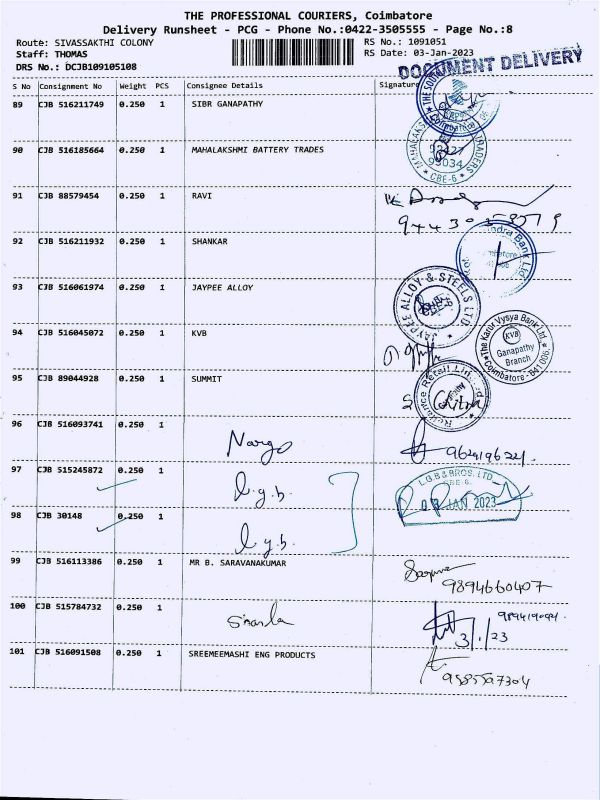 THE PROFESSIONAL COURIERS, Coimbatore
Delivery Runsheet - PCG - Phone No.:0422-3505555 - Page No.:8
Route: SIVASSAKTHI COLONY RS No.: 1091051
Staff: THOMAS RS Date: 03-Jan-2023
DRS No.: DCJB109105108
DOCUMENT DELIVERY
S No Consignment No Weight PCS Consignee Details Signature
89 CJB 516211749 0.250 1 SIBR GANAPATHY
90 CJB 516185664 0.250 1 MAHALAKSHMI BATTERY TRADES
93034
CBE-6
91 CJB 88579454 0.250 1 RAVI
92 CJB 516211932 0.250 1 SHANKAR
93 CJB 516061974 0.250 1 JAYPEE ALLOY
JAYPEE ALLOY & STEELS LTD.
94 CJB 516045072 0.250 1 KVB
The Karur Vysya Bank Ltd.
KVB
Ganapathy
Branch
Coimbatore - 641 006.
95 CJB 89044928 0.250 1 SUMMIT
Reliance Retail Limited
96 CJB 516093741 0.250 1
97 CJB 515245872 0.250 1 l.g.b.
L.G.B & BROS. LTD
CBE-6.
03 JAN 2023
98 CJB 30148 0.250 1 l.g.b.
99 CJB 516113386 0.250 1 MR B. SARAVANAKUMAR
9894660407
100 CJB 515784732 0.250 1
3/1/23
101 CJB 516091508 0.250 1 SREEMEEMASHI ENG PRODUCTS